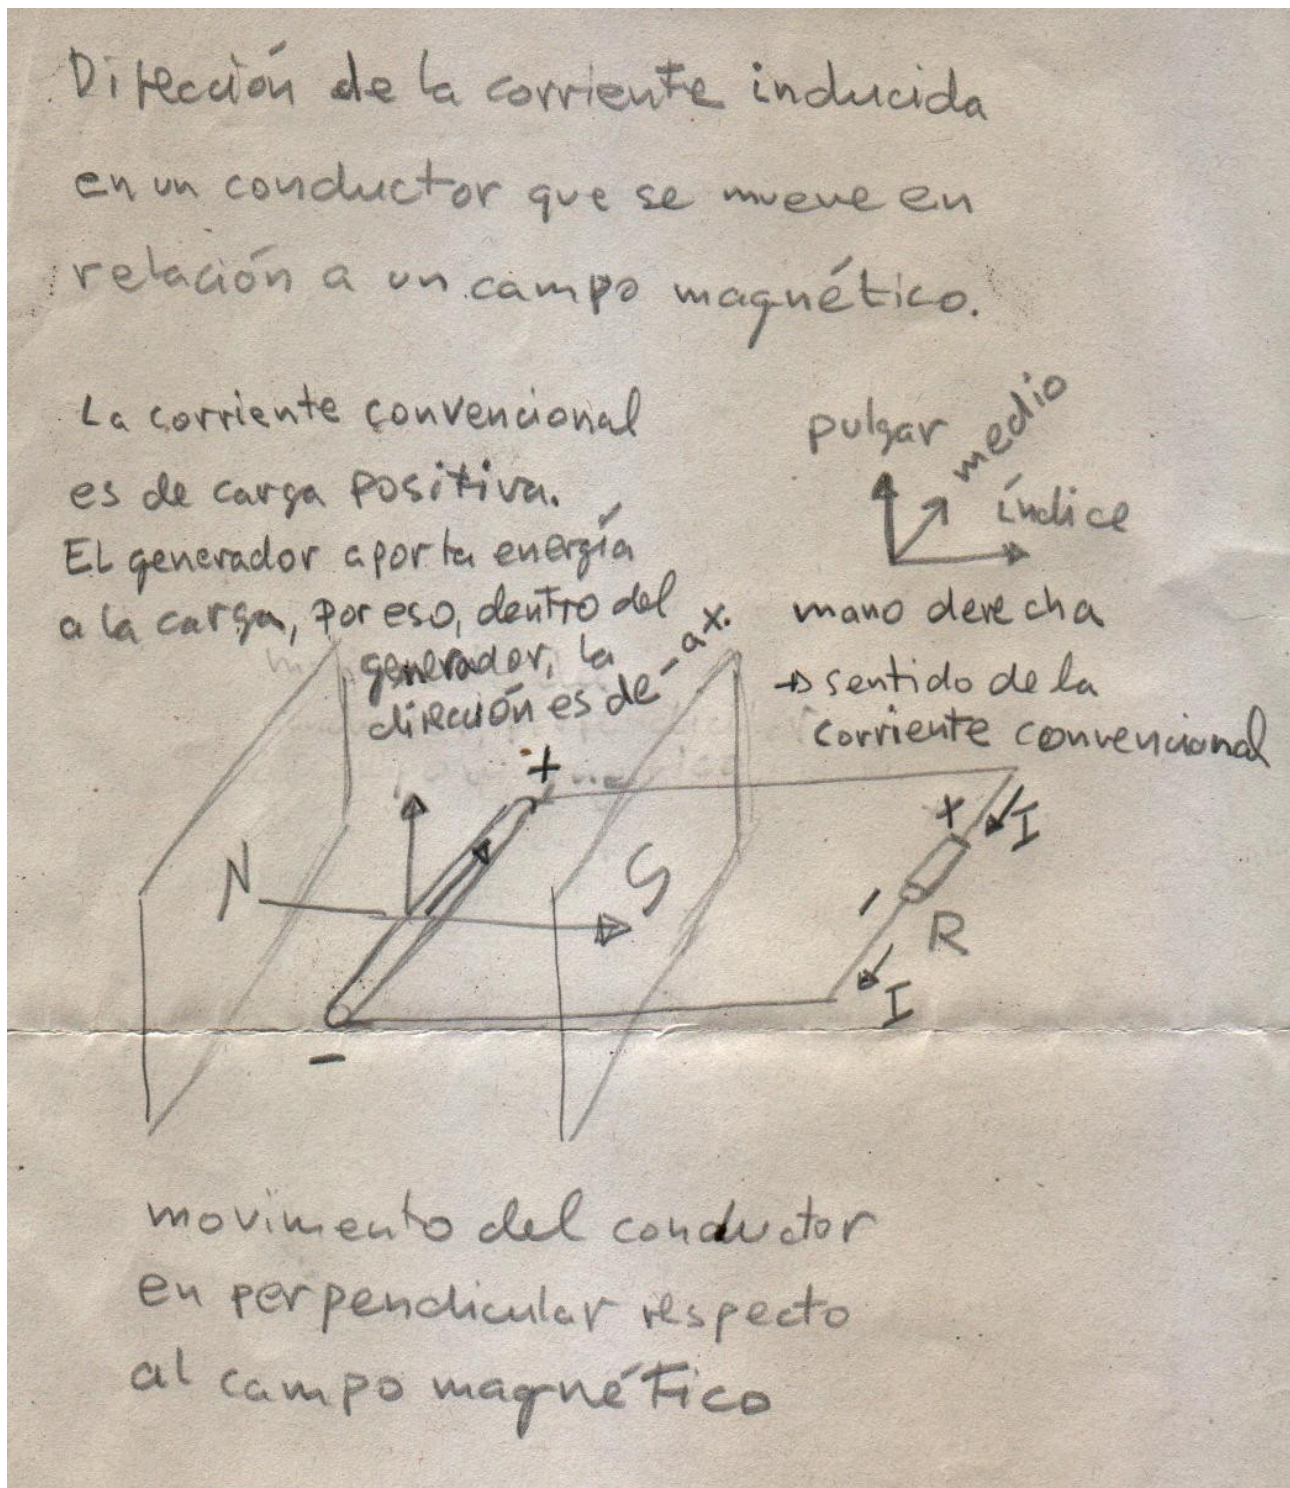 Dirección de la corriente inducida
en un conductor que se mueve en
relación a un campo magnético.
La corriente convencional
es de carga positiva.
El generador aporta energía
a la carga, por eso, dentro del
generador, la
dirección es de - a +.
pulgar
medio
índice
mano derecha
→ sentido de la
corriente convencional
+
N
S
+
I
-
R
I
-
movimento del conductor
en perpendicular respecto
al campo magnético